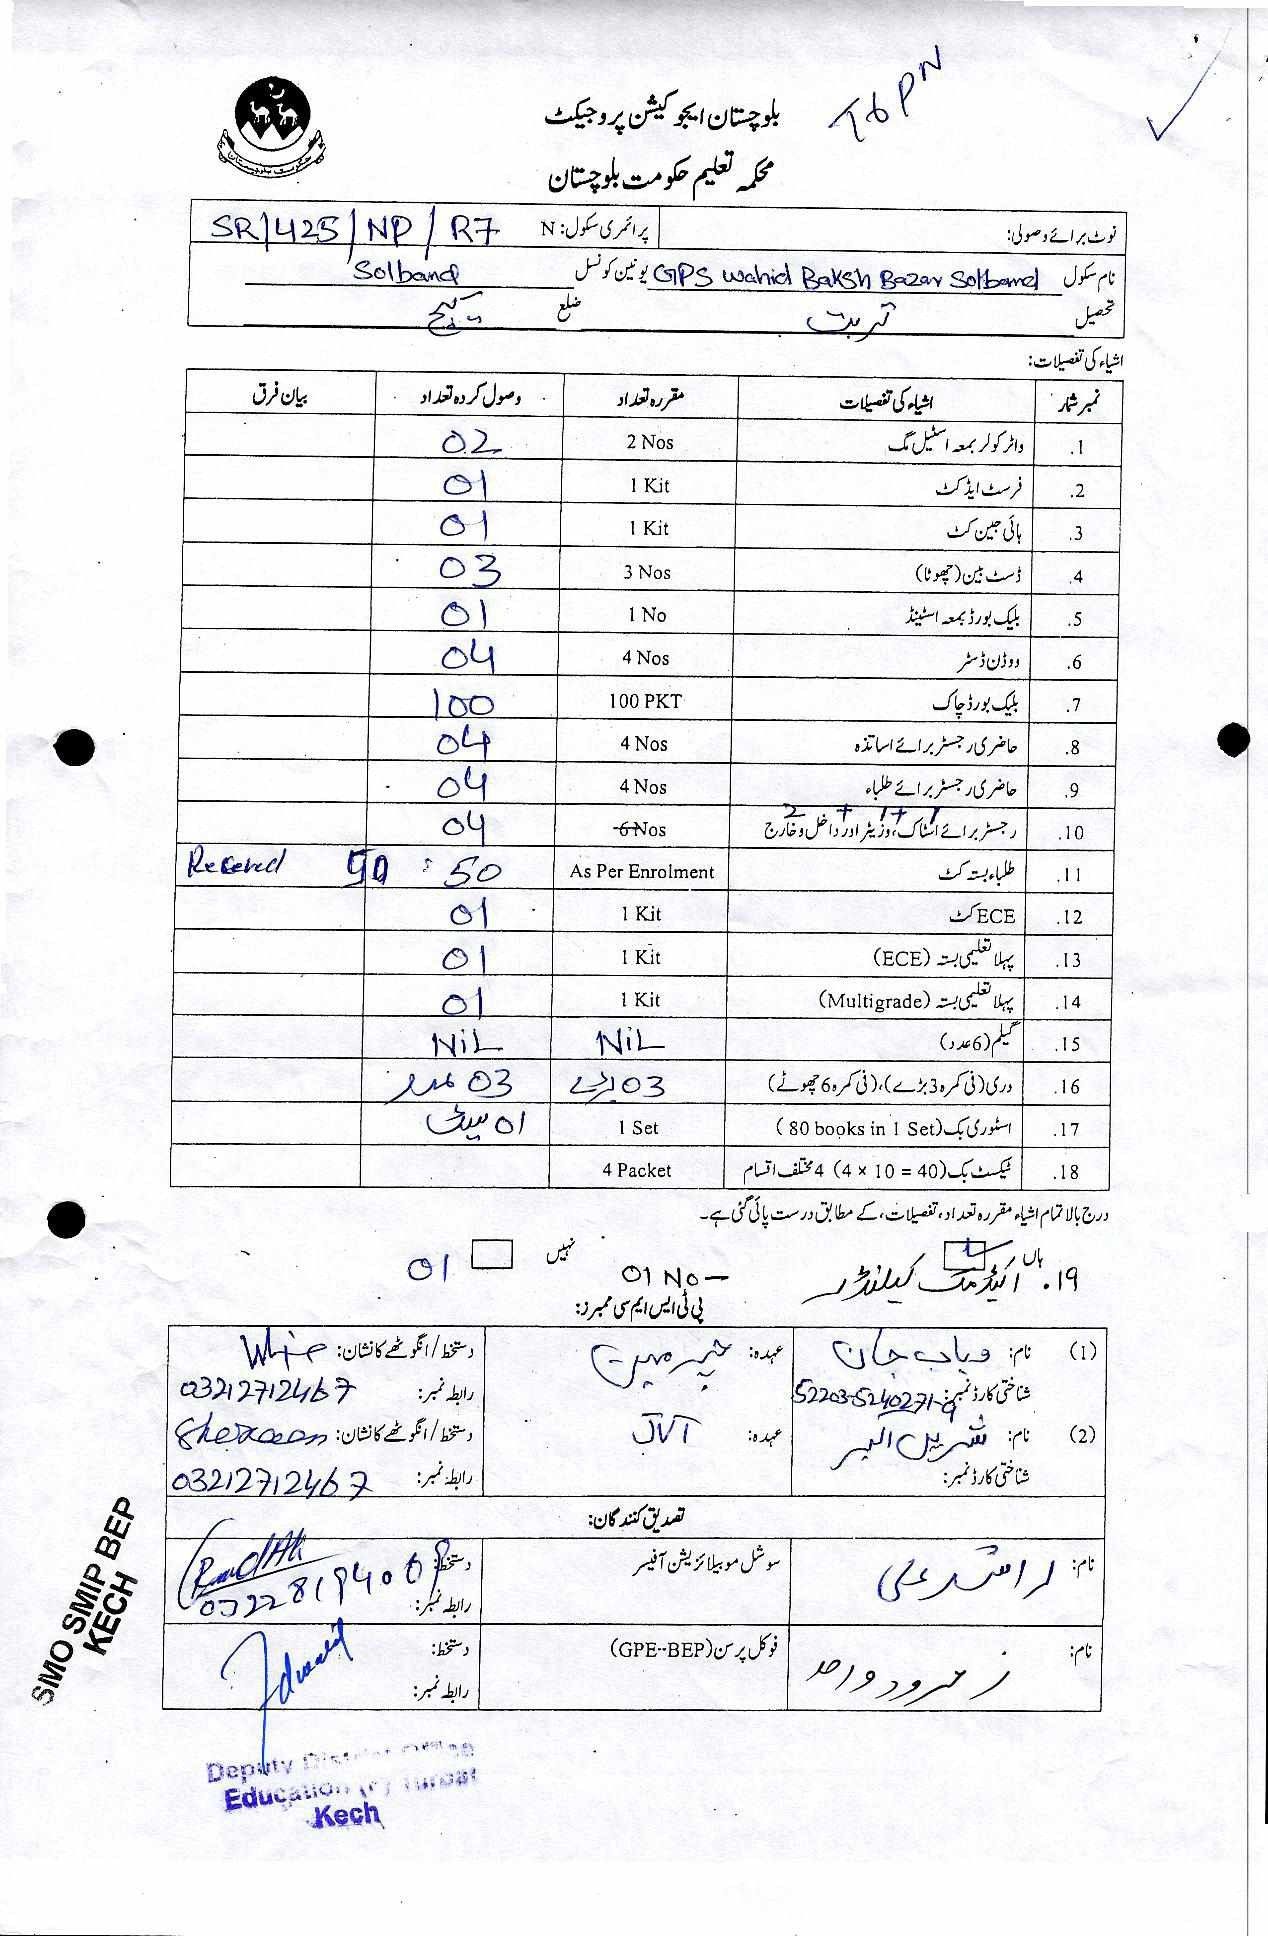 T6PN
بلوچستان ایجوکیشن پروجیکٹ
محکمہ تعلیم حکومت بلوچستان
نوٹ برائے وصولی: پرائمری سکول: N SR/425/NP/R7
نام سکول GPS Wahid Baksh Bazar Solband یونین کونسل Solband
تحصیل تربت ضلع کیچ
اشیاء کی تفصیلات:
نمبر شمار اشیاء کی تفصیلات مقررہ تعداد وصول کردہ تعداد بیان فرق
1. واٹر کولر بمعہ اسٹیل مگ 2 Nos 02
2. فرسٹ ایڈ کٹ 1 Kit 01
3. ہائی جین کٹ 1 Kit 01
4. ڈسٹ بین (چھوٹا) 3 Nos 03
5. بلیک بورڈ بمعہ اسٹینڈ 1 No 01
6. ووڈن ڈسٹر 4 Nos 04
7. بلیک بورڈ چاک 100 PKT 100
8. حاضری رجسٹر برائے اساتذہ 4 Nos 04
9. حاضری رجسٹر برائے طلباء 4 Nos 04
2 + 1 + 1
10. رجسٹر برائے اسٹاک، وزیٹر اور داخل و خارج 6 Nos 04
11. طلباء بستہ کٹ As Per Enrolment 50 Received 50
12. ECE کٹ 1 Kit 01
13. پہلا تعلیمی بستہ (ECE) 1 Kit 01
14. پہلا تعلیمی بستہ (Multigrade) 1 Kit 01
15. گلیم (6 عدد) NiL NiL
16. دری (فی کمرہ 3 بڑے)، (فی کمرہ 6 چھوٹے) 03 بڑے 03 عدد
17. اسٹوری بک (80 books in 1 Set) 1 Set 01 سیٹ
18. ٹیکسٹ بک (4 × 10 = 40) 4 مختلف اقسام 4 Packet
درج بالا تمام اشیاء مقررہ تعداد، تفصیلات، کے مطابق درست پائی گئی ہے۔
ہاں نہیں
۱۹. اکیڈمک کیلنڈر 01 No 01
پی ٹی ایس ایم سی ممبرز:
(1) نام: وہاب جان عہدہ: چیرمین دستخط/انگوٹھے کا نشان:
شناختی کارڈ نمبر: 52203-5240271-9 رابطہ نمبر: 03212712467
(2) نام: عہدہ: JVT دستخط/انگوٹھے کا نشان:
شناختی کارڈ نمبر: رابطہ نمبر: 03212712467
تصدیق کنندگان:
نام: راشد علی سوشل موبیلائزیشن آفیسر دستخط:
رابطہ نمبر:
نام: فوکل پرسن (GPE--BEP) دستخط:
رابطہ نمبر:
SMO SMIP BEP
KECH
Deputy District Officer
Education Turbat
Kech